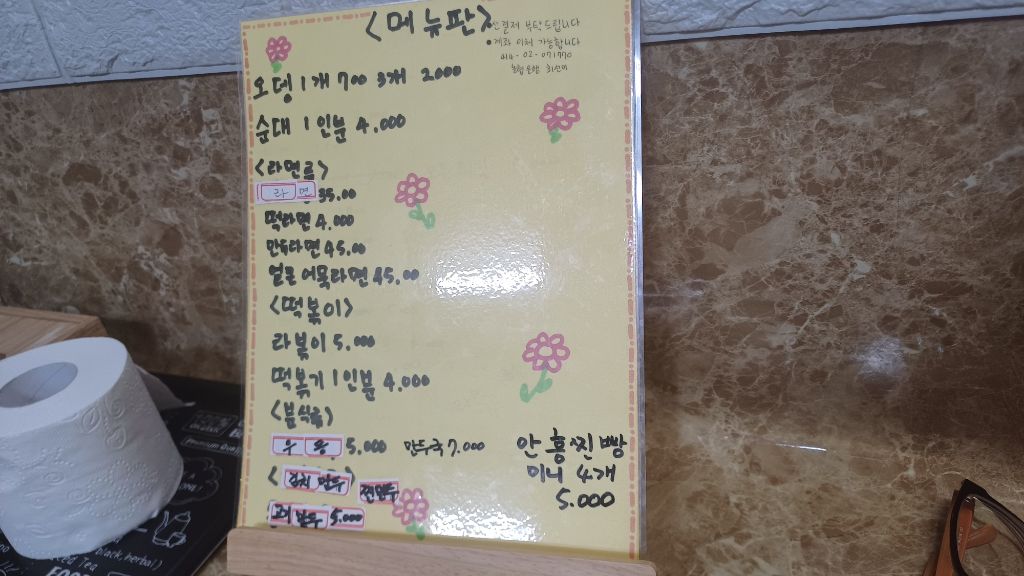 <메뉴판>
선결제 부탁드립니다
•계좌 이체 가능합니다
오뎅 1개 700 3개 2000
순대 1인분 4,000
<라면류>
라면 35.00
떡라면 4.000
만두라면 45.00
얼큰 어묵라면 45.00
<떡볶이>
라볶이 5.000
떡볶기 1인분 4.000
<분식류>
우동 5.000 만두국 7.000
<김치 만두> 찐만두
고기 만두 5.000
안흥찐빵
미니 4개
5.000
black herbal
Tea